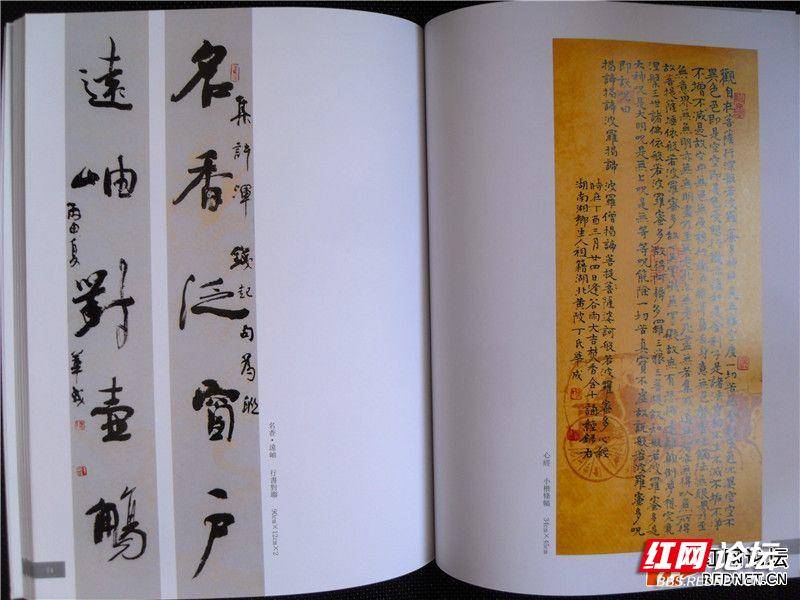 名香泛窗户
集許渾錢起句為聯
遠岫對壺觴
丙申夏 華成
名香·遠岫 行書對聯 90cm×12cm×2
觀自在菩薩行深般若波羅蜜多時照見五蘊皆空度一切苦厄舍利子色不異空空不
異色色即是空空即是色受想行識亦復如是舍利子是諸法空相不生不滅不垢不淨
不增不減是故空中無色無受想行識無眼耳鼻舌身意無色聲香味觸法無眼界乃至
無意界無無明亦無無明盡乃至無老死亦無老死盡無苦集滅道無智亦無得以無所得
故菩提薩埵依般若波羅蜜多故心無罣礙無罣礙故無有恐怖遠離顛倒夢想究竟
涅槃三世諸佛依般若波羅蜜多故得阿耨多羅三藐三菩提故知般若波羅蜜多是
大神咒是大明咒是無上咒是無等等咒能除一切苦真實不虛故說般若波羅蜜多咒
即說咒曰
揭諦揭諦波羅揭諦 波羅僧揭諦菩提薩婆訶般若波羅蜜多心經
時在丁酉三月廿四日逢谷雨大吉焚香合十誦經錄
湖南湘鄉生人祖籍湖北黃陂丁氏華成
心經 小楷條幅 34cm×45cm
红网论坛
BBS.REDNET.CN